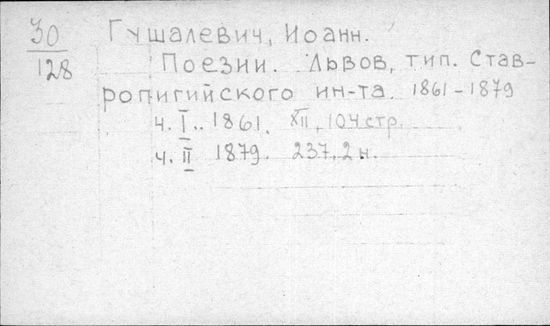 30 Гушалевич, Иоанн.
128 Поезии. Львов, тип. Став-
ропигийского ин-та. 1861-1879
ч. I.. 1861. XII, 104 стр.
ч. II 1879. 237, 2 н.